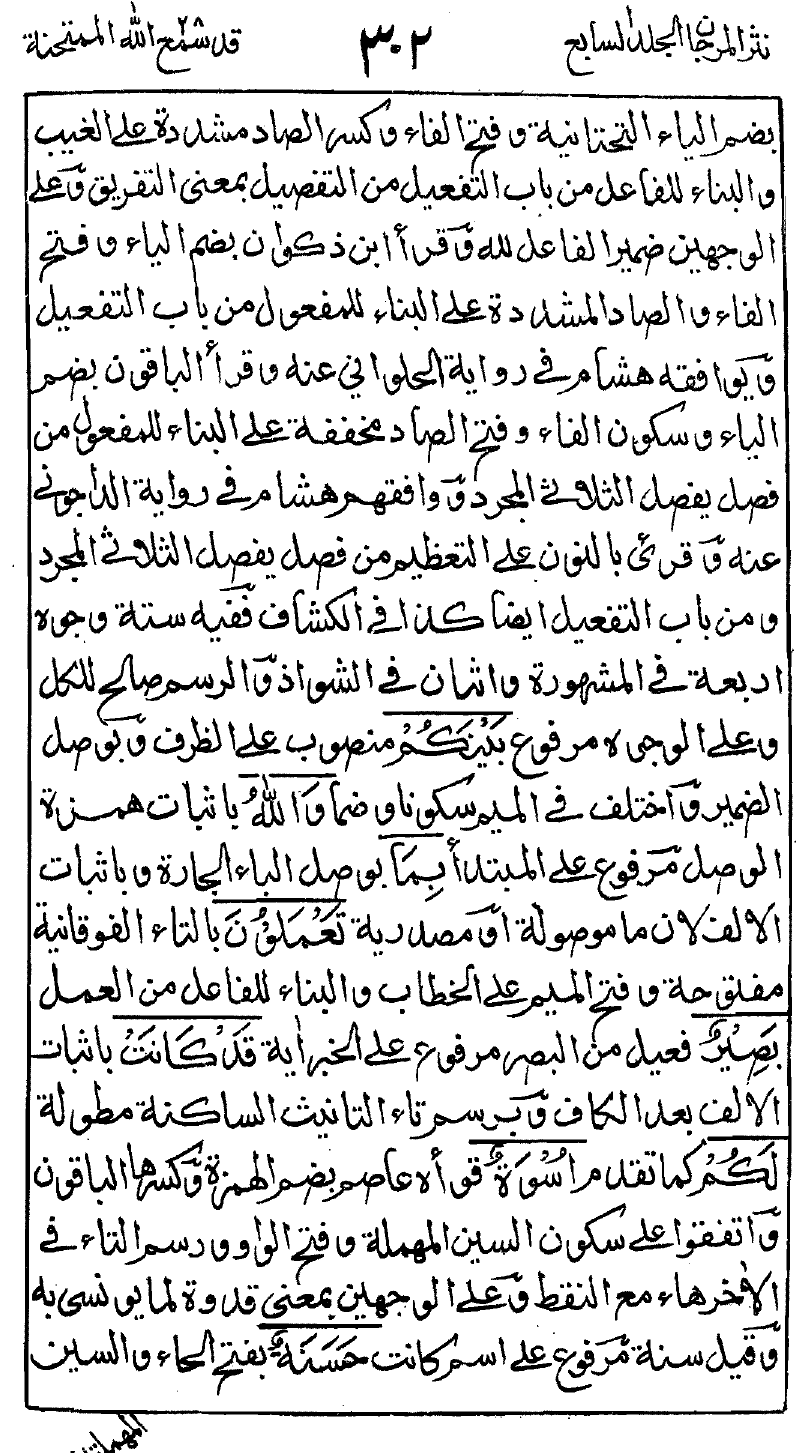 نثر المرجان المجلد السابع
٣٠٢
قد سمع الله ٢٨ الممتحنة
بضم الياء التحتانية وفتح الفاء وكسر الصاد مشددة على الغيب
والبناء للفاعل من باب التفعيل من التفصيل بمعنى التفريق وَعلى
الوجهين ضمير الفاعل لله وَقرأ ابن ذكوان بضم الياء وفتح
الفاء والصاد المشددة على البناء للمفعول من باب التفعيل
وَيوافقه هشام في رواية الحلواني عنه وقرأ الباقون بضم
الياء وسكون الفاء وفتح الصاد مخففة على البناء للمفعول من
فصل يفصل الثلاثي المجرد وَوافقهم هشام في رواية الداجوني
عنه وَقرئ بالنون على التعظيم من فصل يفصل الثلاثي المجرد
ومن باب التفعيل ايضا كذا في الكشاف فَفيه ستة وجوه
اربعة في المشهورة واثنان في الشواذ وَالرسم صالح للكل
وعلى الوجوه مرفوع بَيْنَكُمْ منصوب على الظرف وَبوصل
الضمير وَاختلف في الميم سكونا وضما وَاللهُ باثبات همزة
الوصل مَرفوع على المبتدأ بِمَا بوصل الباء الجارة وباثبات
الالف لان ما موصولة اوَ مصدرية تَعْمَلُوْنَ بالتاء الفوقانية
مفتوحة وفتح الميم على الخطاب والبناء للفاعل من العمل
بَصِيْرٌ فعيل من البصر مرفوع على الخبر اٰية قَدْ كَانَتْ باثبات
الالف بعد الكاف وَبرسم تاء التانيث الساكنة مطولة
لَكُمْ كما تقدم اُسْوَةٌ قرأه عاصم بضم الهمزة وَكسرها الباقون
وَاتفقوا على سكون السين المهملة وفتح الواو ورسم التاء في
الاٰخر هاء مع النقط وَعلى الوجهين بمعنى قدوة لما يونسى به
وَقيل سنة مَرفوع على اسم كانت حَسَنَةٌ بفتح الحاء والسين
المهملتين